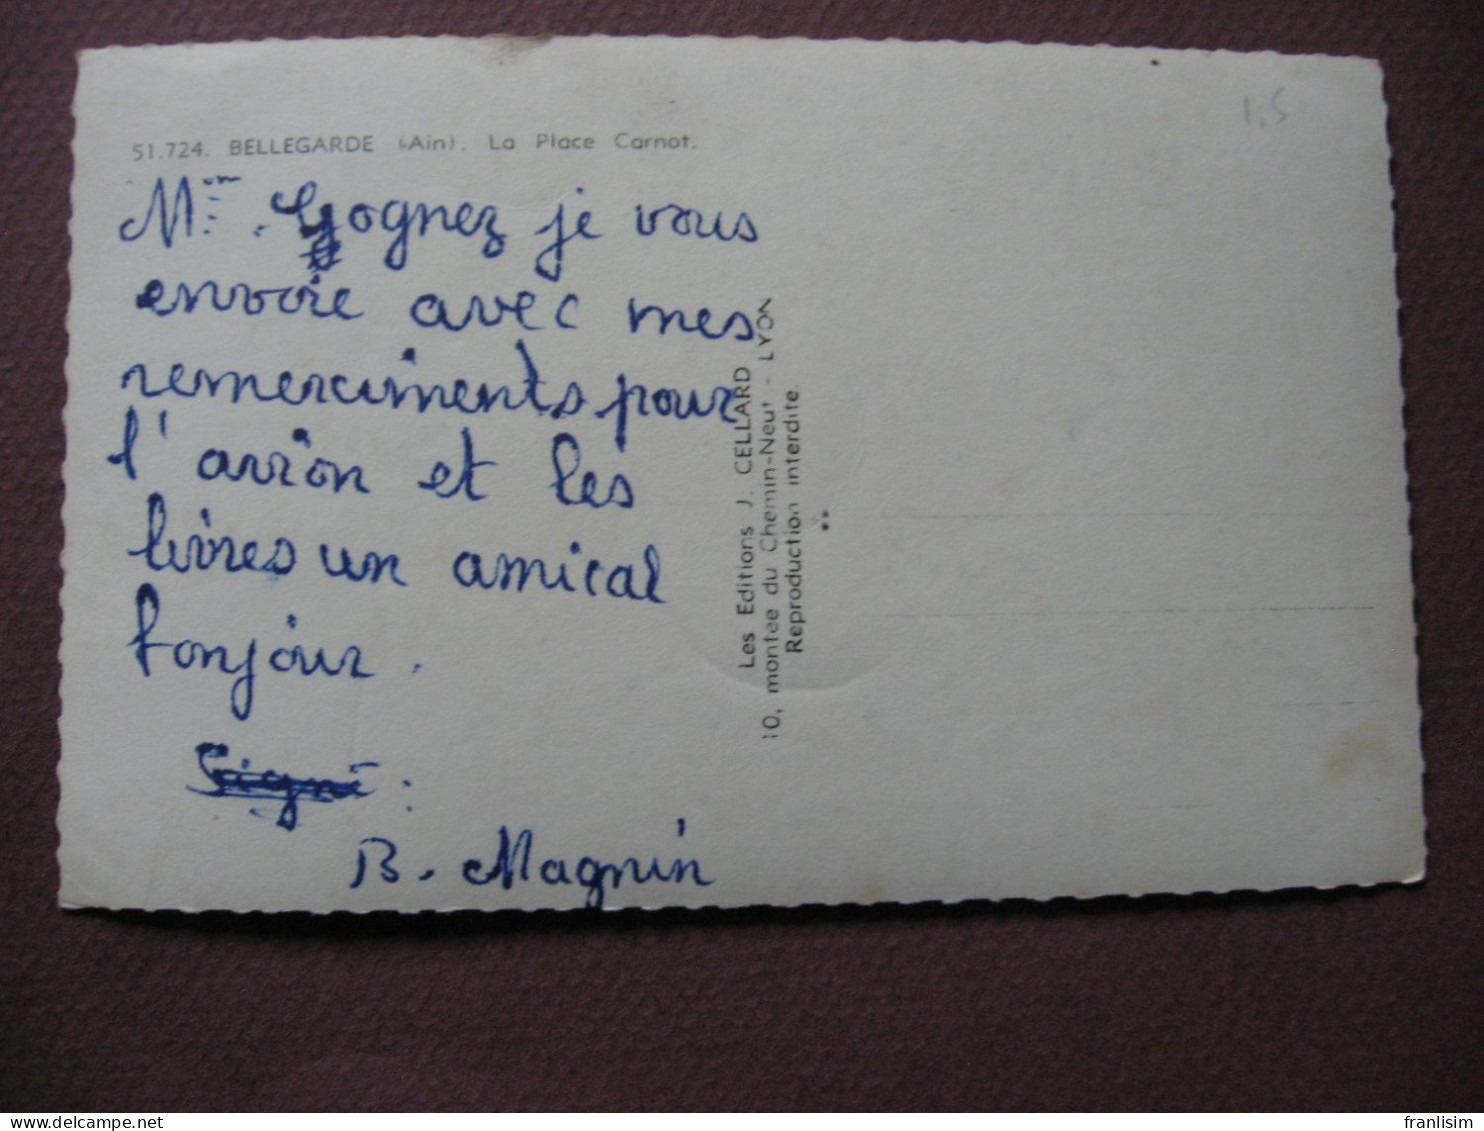 51.724. BELLEGARDE (Ain). La Place Carnot.
1,5
Mme. Gognez je vous
envoie avec mes
remerciments pour
l'avion et les
livres un amical
bonjour.
Signé :
B. Magnin
Les Editions J. CELLARD
10, montée du Chemin-Neuf - LYON
Reproduction interdite.
delcampe.net
franlisim